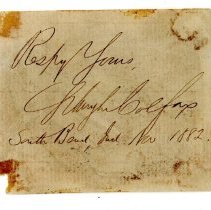 Respy Yours,
Schuyler Colfax
South Bend, Ind. Nov 1882.